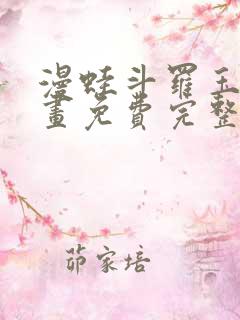 漫蛙斗羅玉
畫免費完整
茆家培